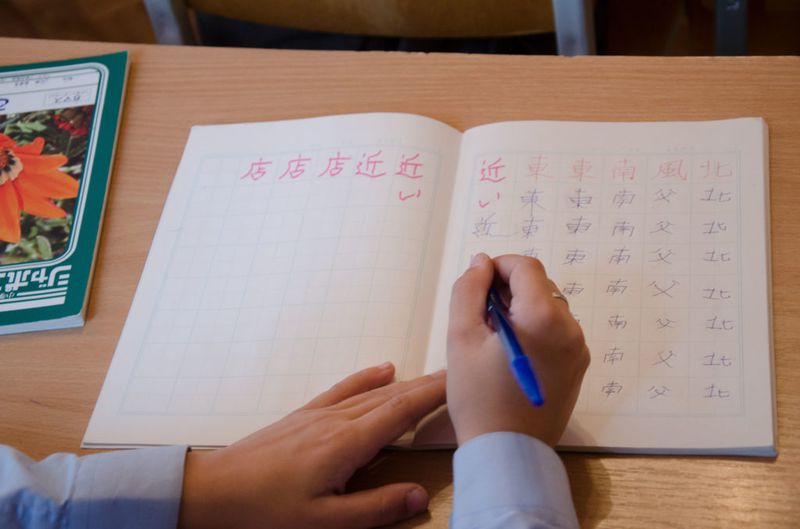 北北北北北北北北
風父父父父父父父
南南南南南南南南
東東東東東
東東東東
近い近
近い
近
店
店
店
ジャポ